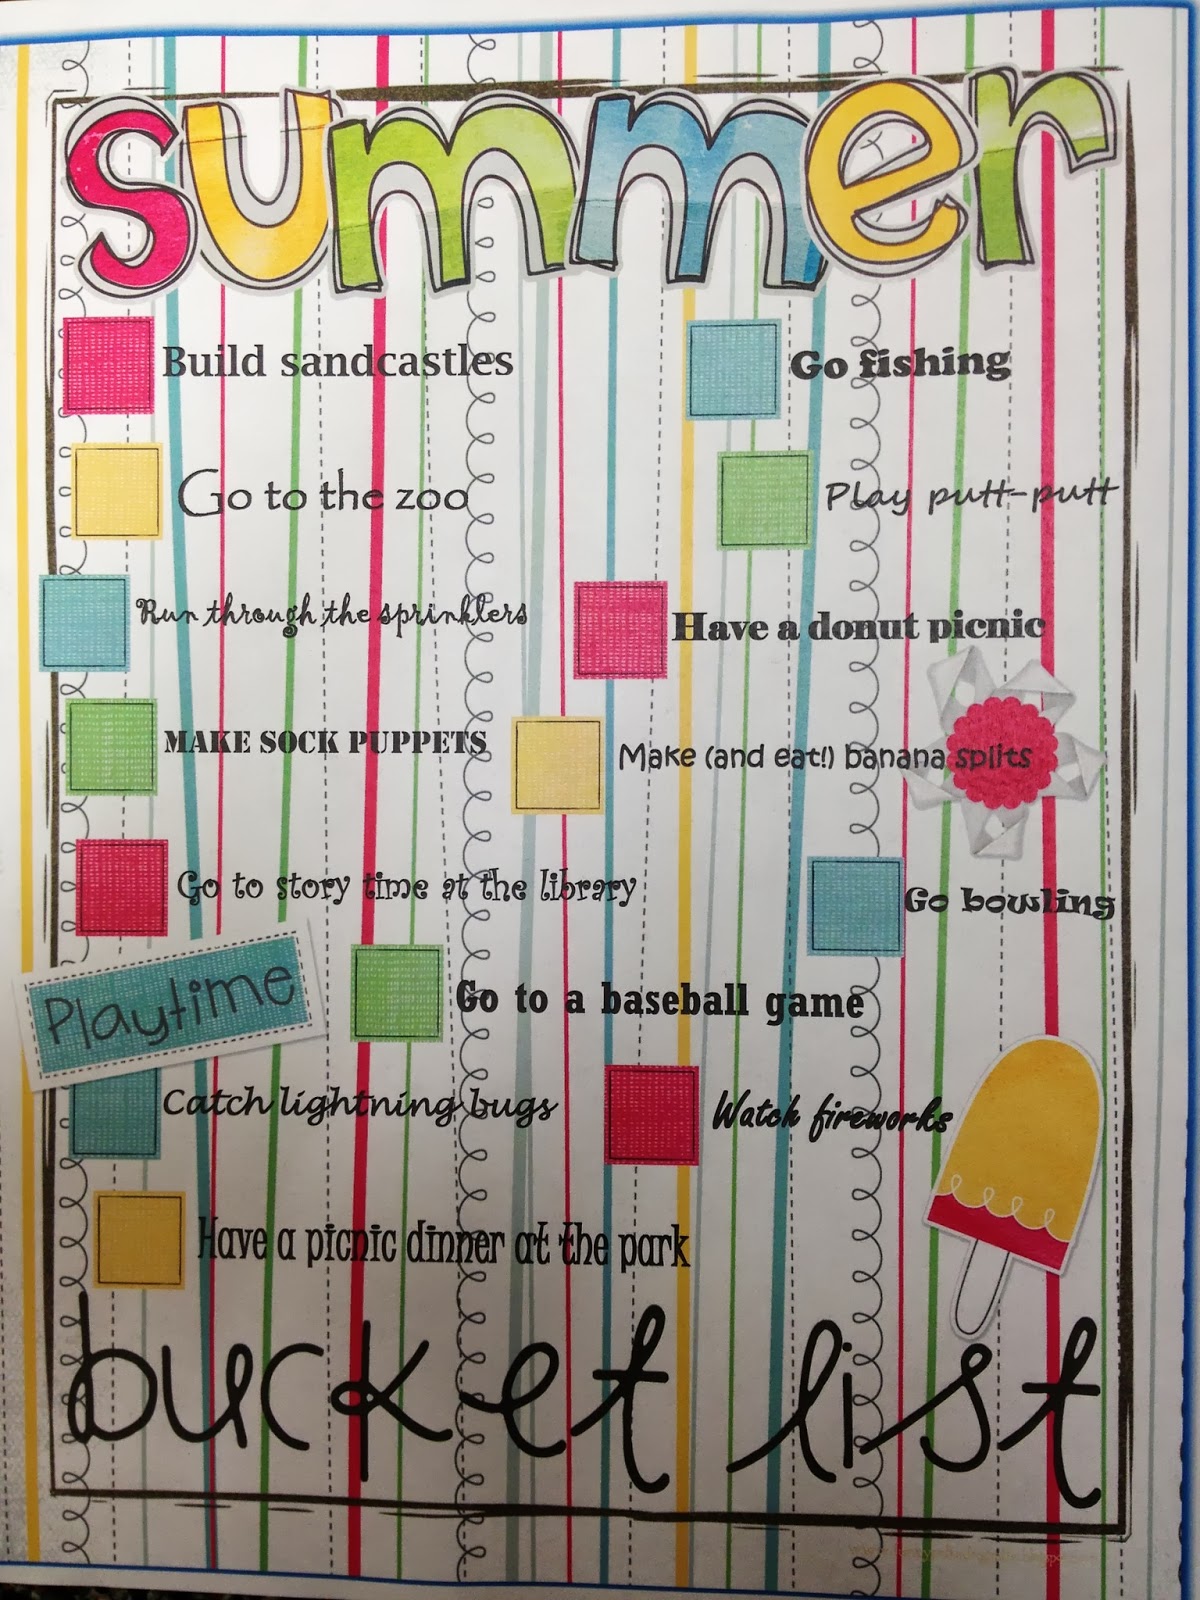 summer
Build sandcastles
Go fishing
Go to the zoo
Play putt-putt
Run through the sprinklers
Have a donut picnic
MAKE SOCK PUPPETS
Make (and eat!) banana splits
Go to story time at the library
Go bowling
Playtime
Go to a baseball game
Catch lightning bugs
Watch fireworks
Have a picnic dinner at the park
bucket list